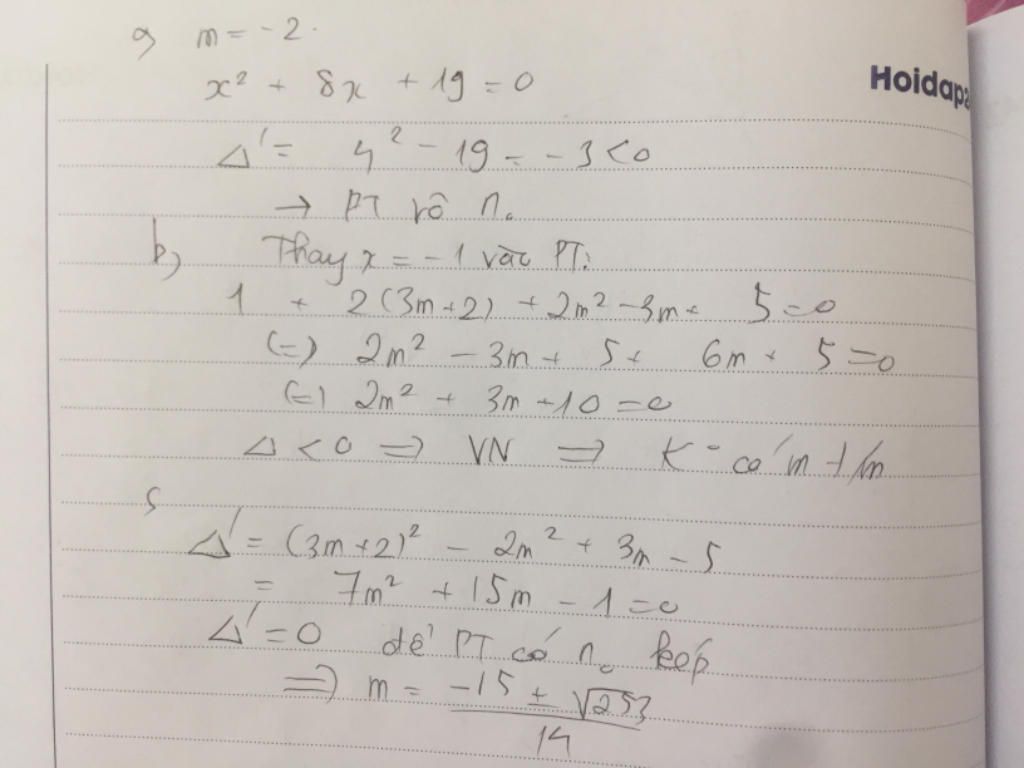 a) m = -2.
x² + 8x + 19 = 0
Hoidap2
Δ' = 4² - 19 = -3 < 0
→ PT vô n₀
b) Thay x = -1 vào PT:
1 + 2(3m+2) + 2m² - 3m + 5 = 0
(=) 2m² - 3m + 5 + 6m + 5 = 0
(=) 2m² + 3m + 10 = 0
Δ < 0 => VN => K° có m t/m
c
Δ' = (3m+2)² - 2m² + 3m - 5
= 7m² + 15m - 1 = 0
Δ' = 0 để PT có n₀ kép
=> m = (-15 ± √253)/14